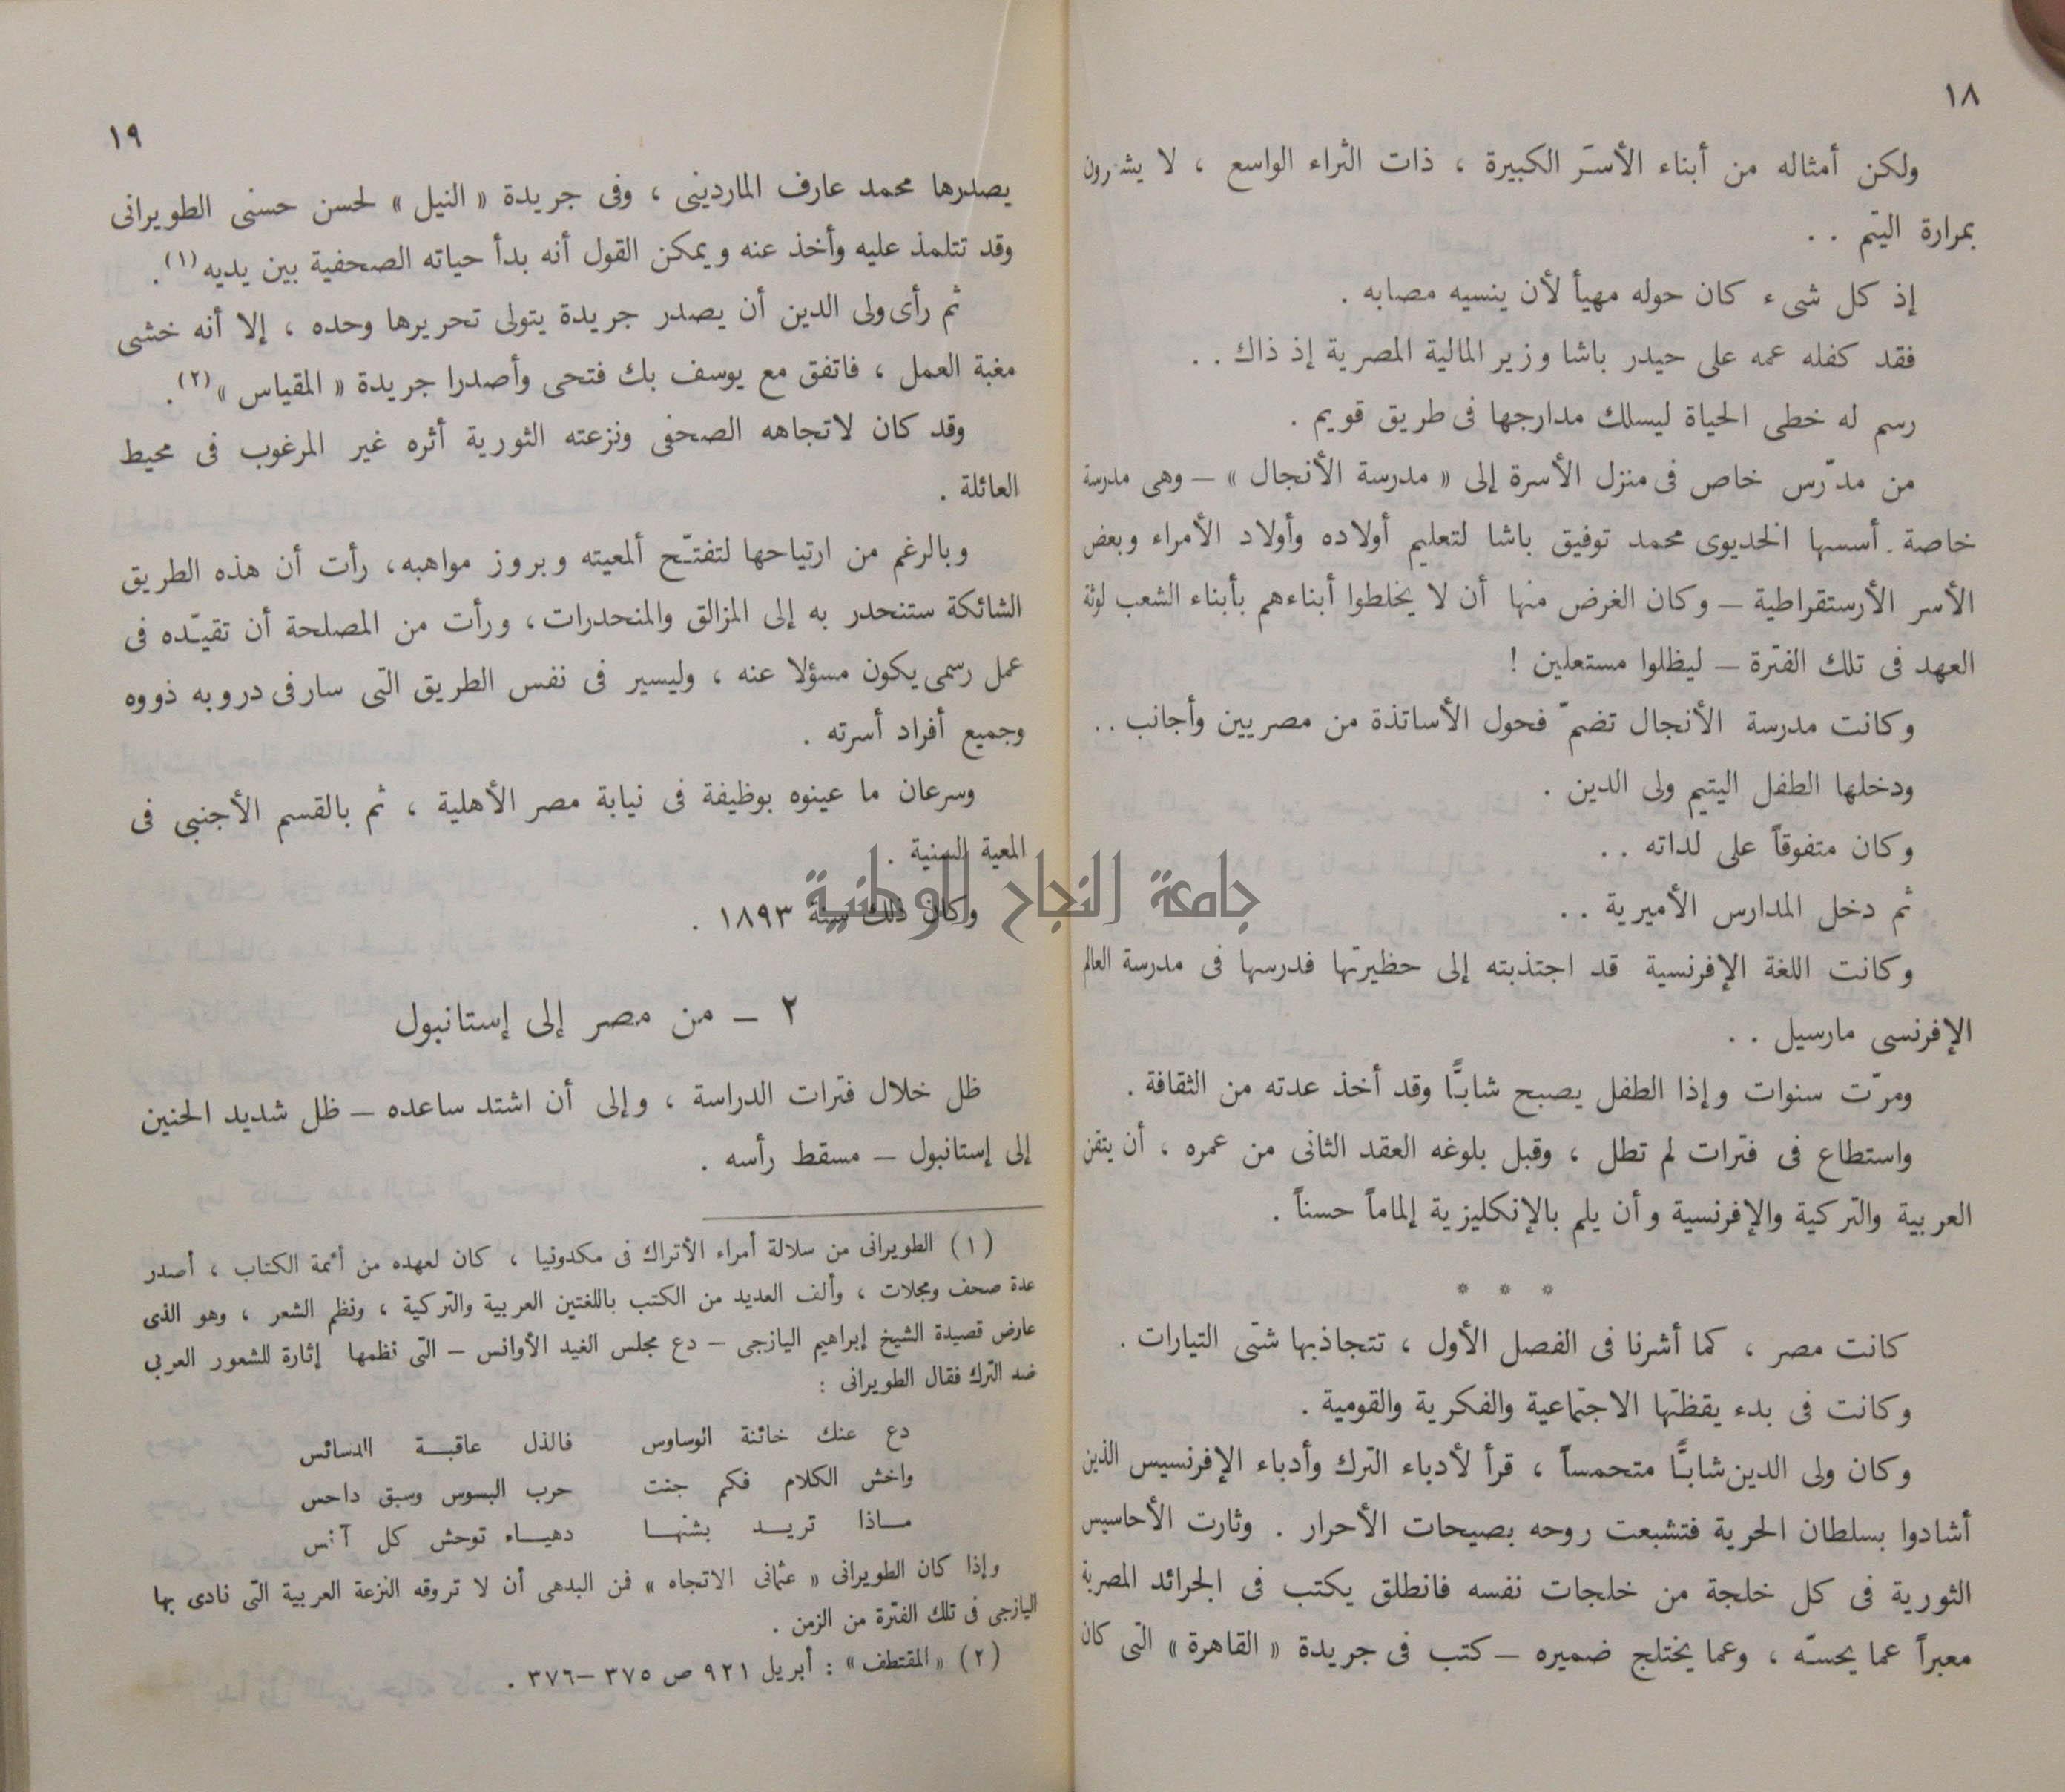 ١٨
ولكن أمثاله من أبناء الأسَر الكبيرة ، ذات الثراء الواسع ، لا يشعرون
بمرارة اليتم . .
إذ كل شىء كان حوله مهيأ لأن ينسيه مصابه .
فقد كفله عمه على حيدر باشا وزير المالية المصرية إذ ذاك . .
رسم له خطى الحياة ليسلك مدارجها فى طريق قويم .
من مدرّس خاص فى منزل الأسرة إلى « مدرسة الأنجال » – وهى مدرسة
خاصة . أسسها الخديوى محمد توفيق باشا لتعليم أولاده وأولاد الأمراء وبعض
الأسر الأرستقراطية – وكان الغرض منها أن لا يخلطوا أبناءهم بأبناء الشعب لوثة
العهد فى تلك الفترة – ليظلوا مستعلين !
وكانت مدرسة الأنجال تضمّ فحول الأساتذة من مصريين وأجانب . .
ودخلها الطفل اليتيم ولى الدين .
وكان متفوقاً على لداته . .
ثم دخل المدارس الأميرية . .
وكانت اللغة الإفرنسية قد اجتذبته إلى حظيرتها فدرسها فى مدرسة العالم
الإفرنسى مارسيل . .
ومرّت سنوات وإذا الطفل يصبح شابًّا وقد أخذ عدته من الثقافة .
واستطاع فى فترات لم تطل ، وقبل بلوغه العقد الثانى من عمره ، أن يتقن
العربية والتركية والإفرنسية وأن يلم بالإنكليزية إلماماً حسناً .
* * *
كانت مصر ، كما أشرنا فى الفصل الأول ، تتجاذبها شتى التيارات .
وكانت فى بدء يقظتها الاجتماعية والفكرية والقومية .
وكان ولى الدين شابًّا متحمساً ، قرأ لأدباء الترك وأدباء الإفرنسيس الذين
أشادوا بسلطان الحرية فتشبعت روحه بصيحات الأحرار . وثارت الأحاسيس
الثورية فى كل خلجة من خلجات نفسه فانطلق يكتب فى الجرائد المصرية
معبراً عما يحسّه ، وعما يختلج ضميره – كتب فى جريدة « القاهرة » التى كان
١٩
يصدرها محمد عارف الماردينى ، وفى جريدة « النيل » لحسن حسنى الطويرانى
وقد تتلمذ عليه وأخذ عنه ويمكن القول أنه بدأ حياته الصحفية بين يديه (١) .
ثم رأى ولى الدين أن يصدر جريدة يتولى تحريرها وحده ، إلا أنه خشى
مغبة العمل ، فاتفق مع يوسف بك فتحى وأصدرا جريدة « المقياس » (٢) .
وقد كان لاتجاهه الصحفى ونزعته الثورية أثره غير المرغوب فى محيط
العائلة .
وبالرغم من ارتياحها لتفتّح ألمعيته وبروز مواهبه ، رأت أن هذه الطريق
الشائكة ستنحدر به إلى المزالق والمنحدرات ، ورأت من المصلحة أن تقيّده فى
عمل رسمى يكون مسؤلا عنه ، وليسير فى نفس الطريق التى سار فى دروبه ذووه
وجميع أفراد أسرته .
وسرعان ما عينوه بوظيفة فى نيابة مصر الأهلية ، ثم بالقسم الأجنبى فى
المعية السنية .
وكان ذلك سنة ١٨٩٣ .
جامعة النجاح الوطنية
٢ – من مصر إلى إستانبول
ظل خلال فترات الدراسة ، وإلى أن اشتد ساعده – ظل شديد الحنين
إلى إستانبول – مسقط رأسه .
(١) الطويرانى من سلالة أمراء الأتراك فى مكدونيا ، كان لعهده من أئمة الكتاب ، أصدر
عدة صحف ومجلات ، وألف العديد من الكتب باللغتين العربية والتركية ، ونظم الشعر ، وهو الذى
عارض قصيدة الشيخ إبراهيم اليازجى – دع مجلس الغيد الأوانس – التى نظمها إثارة للشعور العربى
ضد الترك فقال الطويرانى :
دع عنك خائنة الوساوس فالذل عاقبة الدسائس
واخش الكلام فكم جنت حرب البسوس وسبق داحس
ماذا تريد بشنها دهياء توحش كل آنس
وإذا كان الطويرانى « عثمانى الاتجاه » فمن البدهى أن لا تروقه النزعة العربية التى نادى بها
اليازجى فى تلك الفترة من الزمن .
(٢) « المقتطف » : أبريل ٩٢١ ص ٣٧٥ –٣٧٦ .